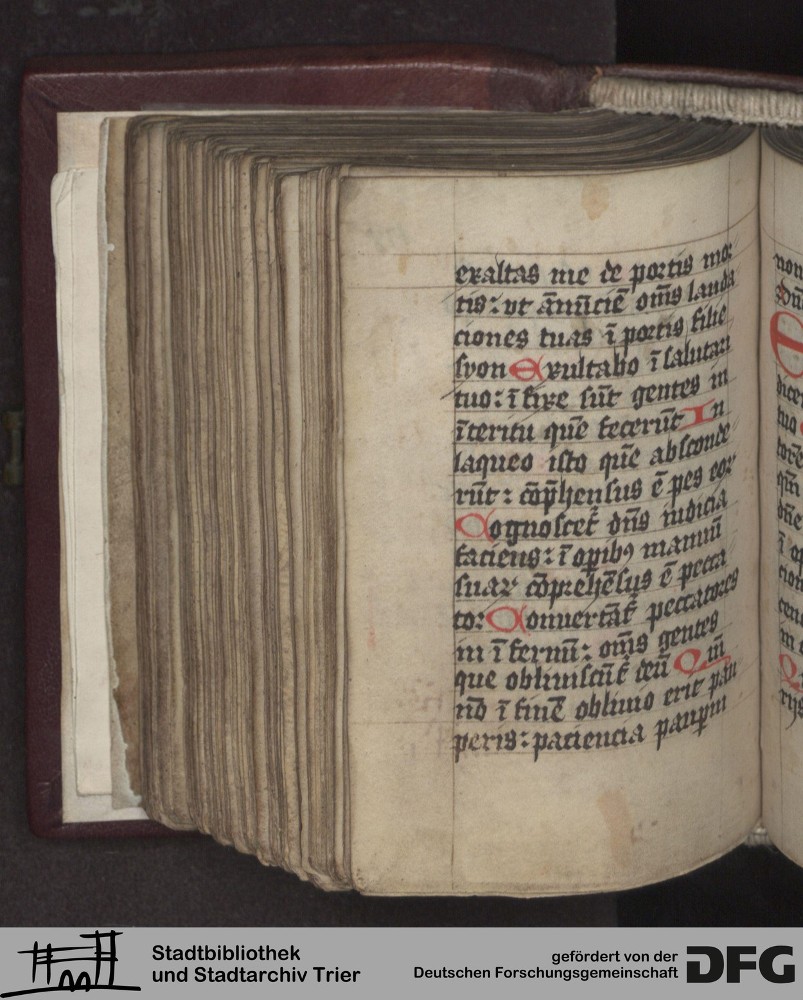 exaltas me de portis mor
tis: ut ānūciē om̄s lauda
ciones tuas ī portis filie
syon Exultabo ī salutari
tuo: ī fixe sūt gentes in
īteritu quē fecerūt In
laqueo isto quē absconde
rūt: cōp̄hensus ē pes eor
Cognoscet᷑ dn̄s iudicia
faciens: ī opibꝫ manuū
suar᷑ cōprehēsus ē pecca
tor Conuertāt᷑ peccatores
in īfernū: om̄s gentes
que obliuiscūt᷑ deū Qm̄
nō ī finē obliuio erit pau
peris: paciencia paupm
non
Dn̄
E
dicer
tuo
qm̄
dn̄e
ī op
cion
cen
in
rijs
Stadtbibliothek
und Stadtarchiv Trier
gefördert von der
Deutschen Forschungsgemeinschaft
DFG